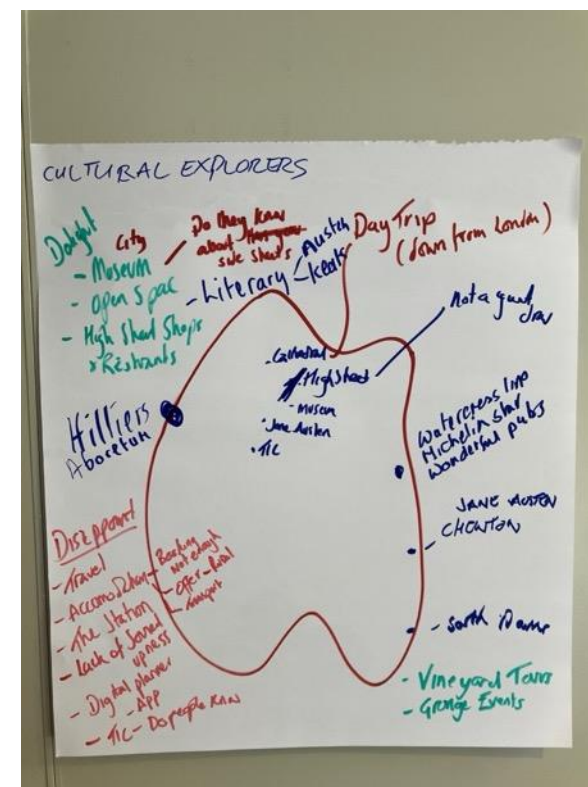 CULTURAL EXPLORERS
Delight
City
- Museum
- Open Spac
- High Street Shops
& Restrants
Do they know
about
side streets
- Literary
Austen
Keats
Day Trip
(down from London)
- Cathedral
High Street
- Museum
- Jane Austen
- TIC
Not a good
Hilliers
Aboretum
Watercress line
Michelin star
Wonderful pubs
JANE AUSTEN
CHOWTON
- South Downs
- Vineyard Tours
- Grange Events
Disappoint
- Travel
- Accomodation
- Booking
Not enough
- Offer - Rural
- Transport
- The Station
- Lack of Joined
upness
- Digital planner
- App
- TIC - Do people know